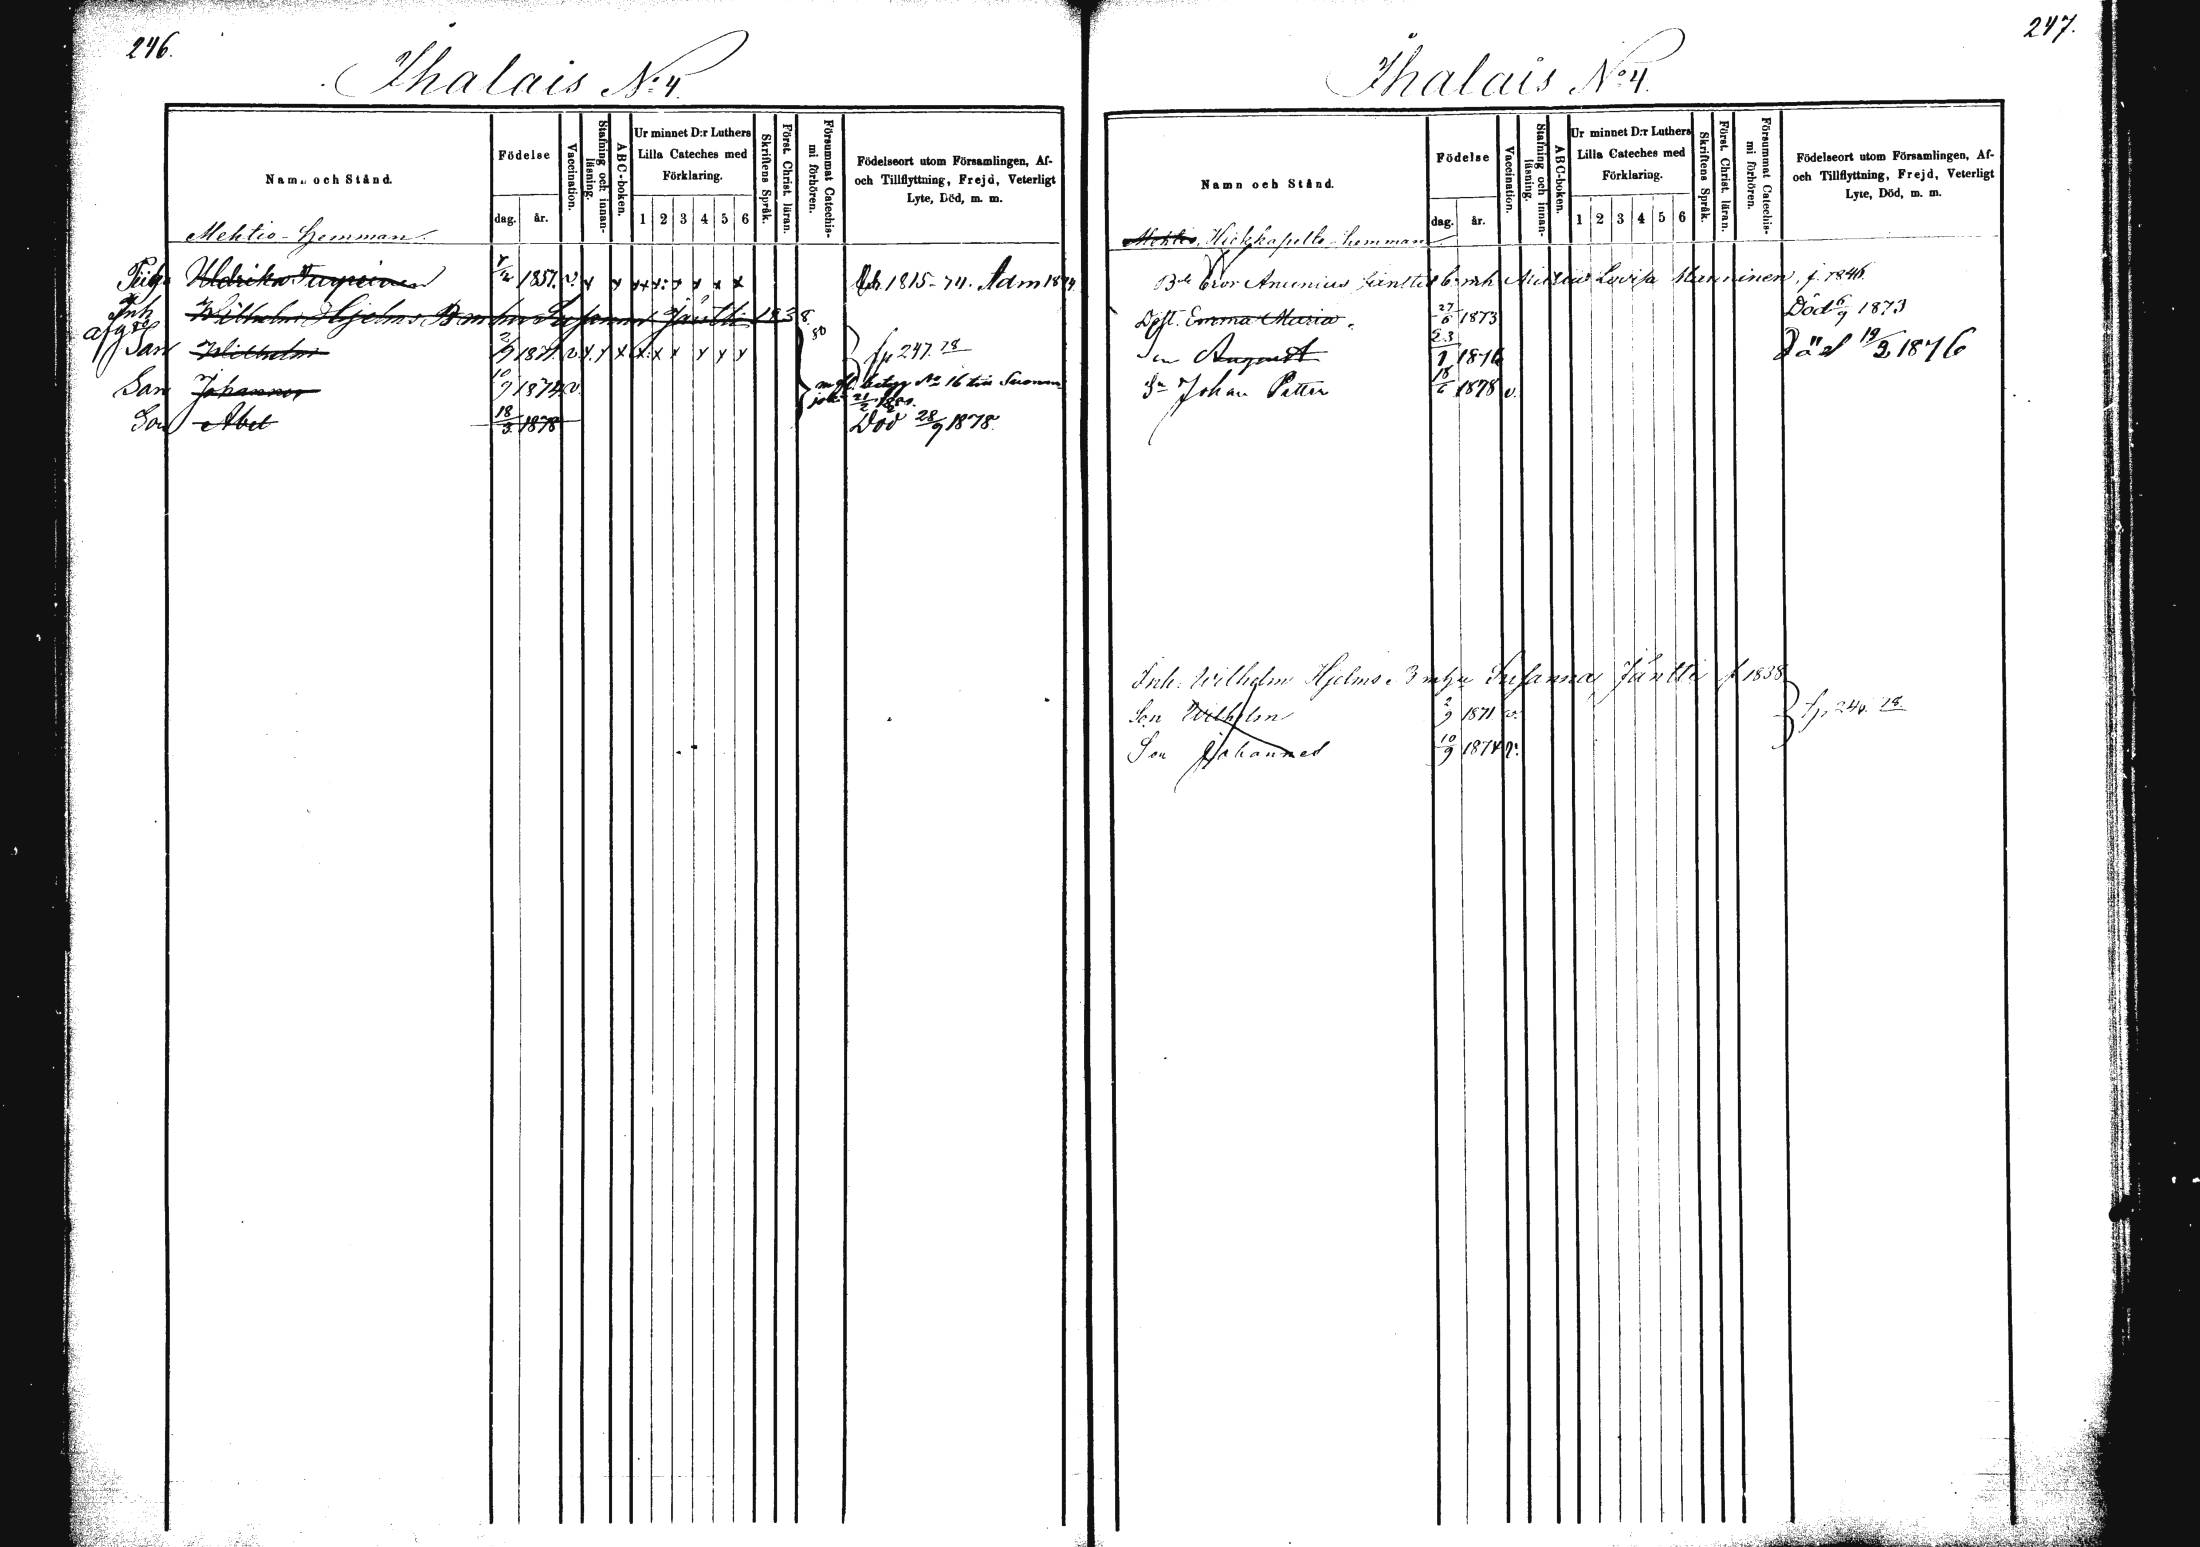 246.
Ihalais No: 4.
Namn och Stånd.
Födelse
dag. år.
Vaccination.
Stafning och innan-
läsning.
ABC-boken.
Ur minnet D:r Luthers
Lilla Cateches med
Förklaring.
1 2 3 4 5 6
Skriftens Språk.
Först. Christ. läran.
Försummat Catechis-
mi förhören.
Födelseort utom Församlingen, Af-
och Tillflyttning, Frejd, Veterligt
Lyte, Död, m. m.
Mehtio-Hemman.
Uldrika 1851. v. x x x x x x x x 1815-74. Adm 1874
Inh Wilhelm Hjelms Susanna Jäntti 1838.
Son Wilhelm 2/9 1871 v. x x x x x x x x x fr 247. 78
Son Johannes 10/9 1874 v. betyg No 16
21/2 1880.
Son Abel 18/3 1878 Död 28/9 1878.
247.
Ihalais No 4.
Namn och Stånd.
Födelse
dag. år.
Vaccination.
Stafning och innan-
läsning.
ABC-boken.
Ur minnet D:r Luthers
Lilla Cateches med
Förklaring.
1 2 3 4 5 6
Skriftens Språk.
Först. Christ. läran.
Försummat Catechis-
mi förhören.
Födelseort utom Församlingen, Af-
och Tillflyttning, Frejd, Veterligt
Lyte, Död, m. m.
Mehtio, hemman
Bror Jäntti Lovisa Manninen, f. 1846
Dott. Emma Maria. 27/6 1873 Död 6/9 1873
Son August 23/1 1876 Död 19/2 1876
Sn Johan Petter 18/6 1878 v.
Inh. Wilhelm Hjelms Susanna Jäntti f 1838
Son Wilhelm 2/9 1871 v.
fr 246. 78.
Son Johannes 10/9 1874 v.